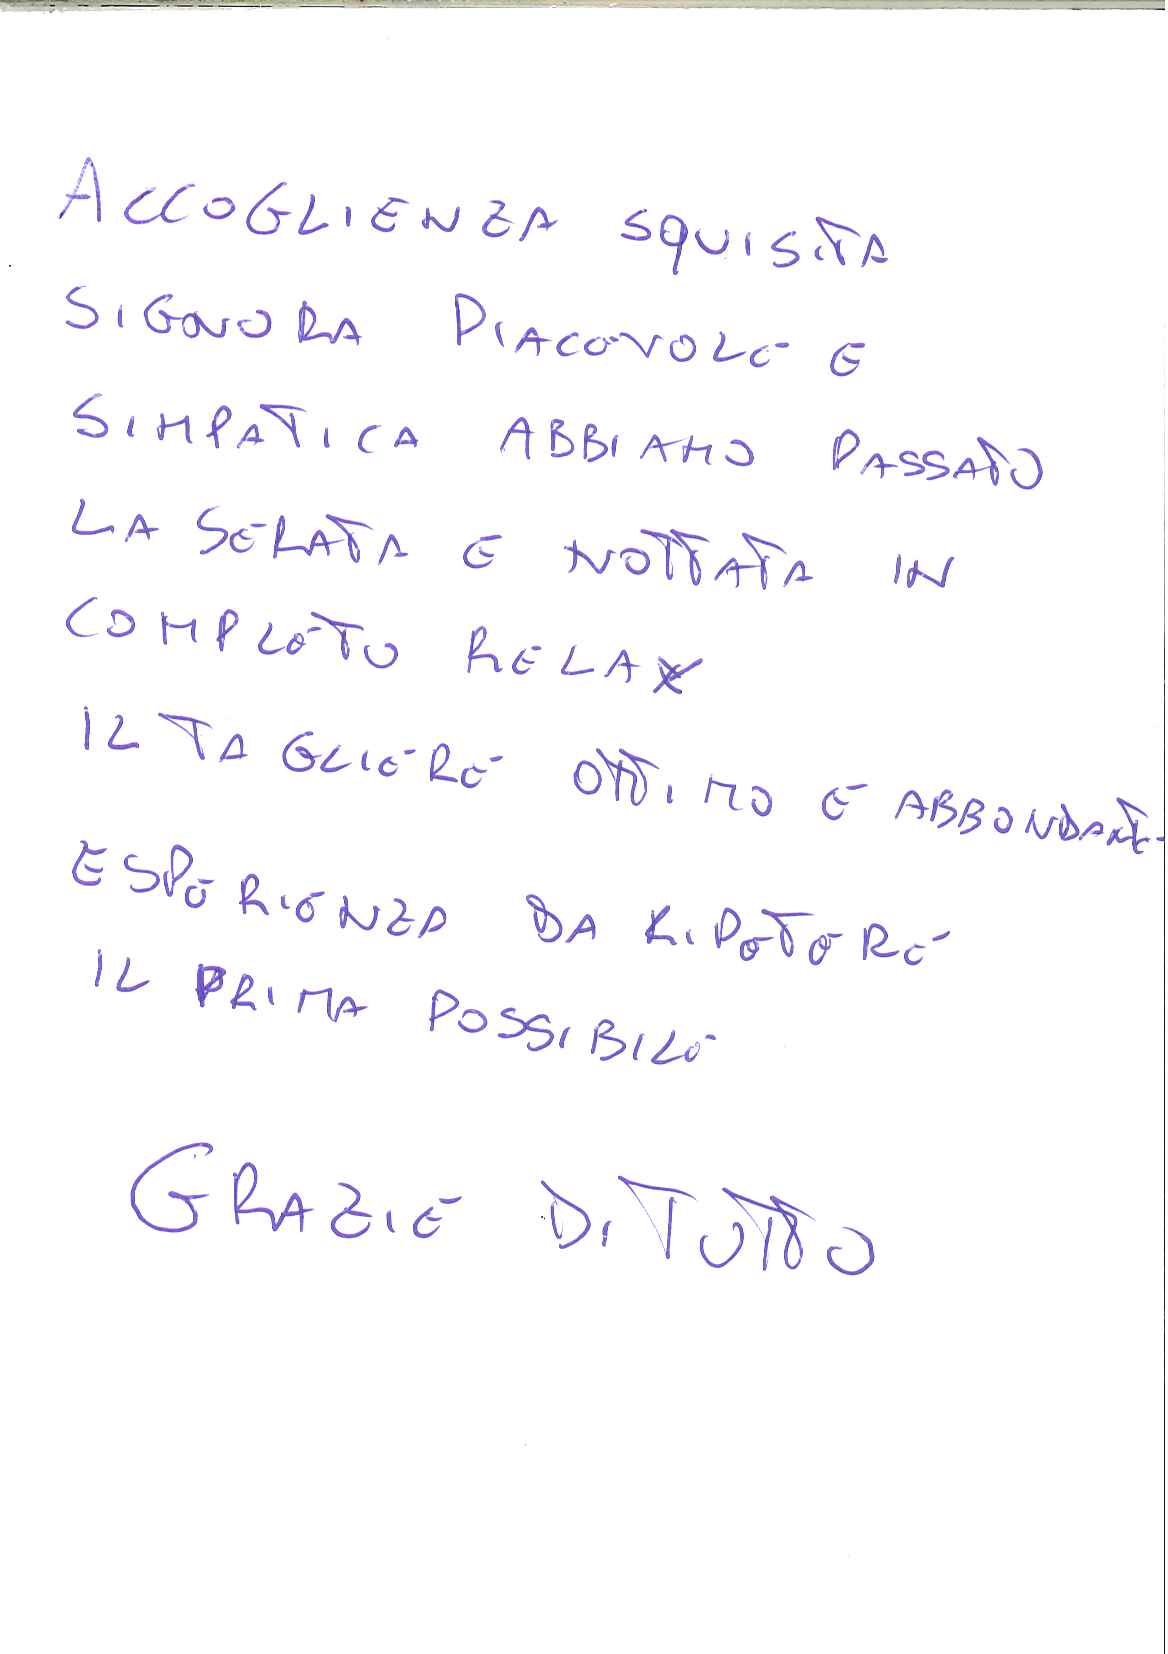 ACCOGLIENZA SQUISITA
SIGNORA PIACEVOLE E
SIMPATICA ABBIAMO PASSATO
LA SERATA E NOTTATA IN
COMPLETO RELAX
IL TAGLIERE OTTIMO E ABBONDANTE
ESPERIENZA DA RIPETERE
IL PRIMA POSSIBILE
GRAZIE DI TUTTO